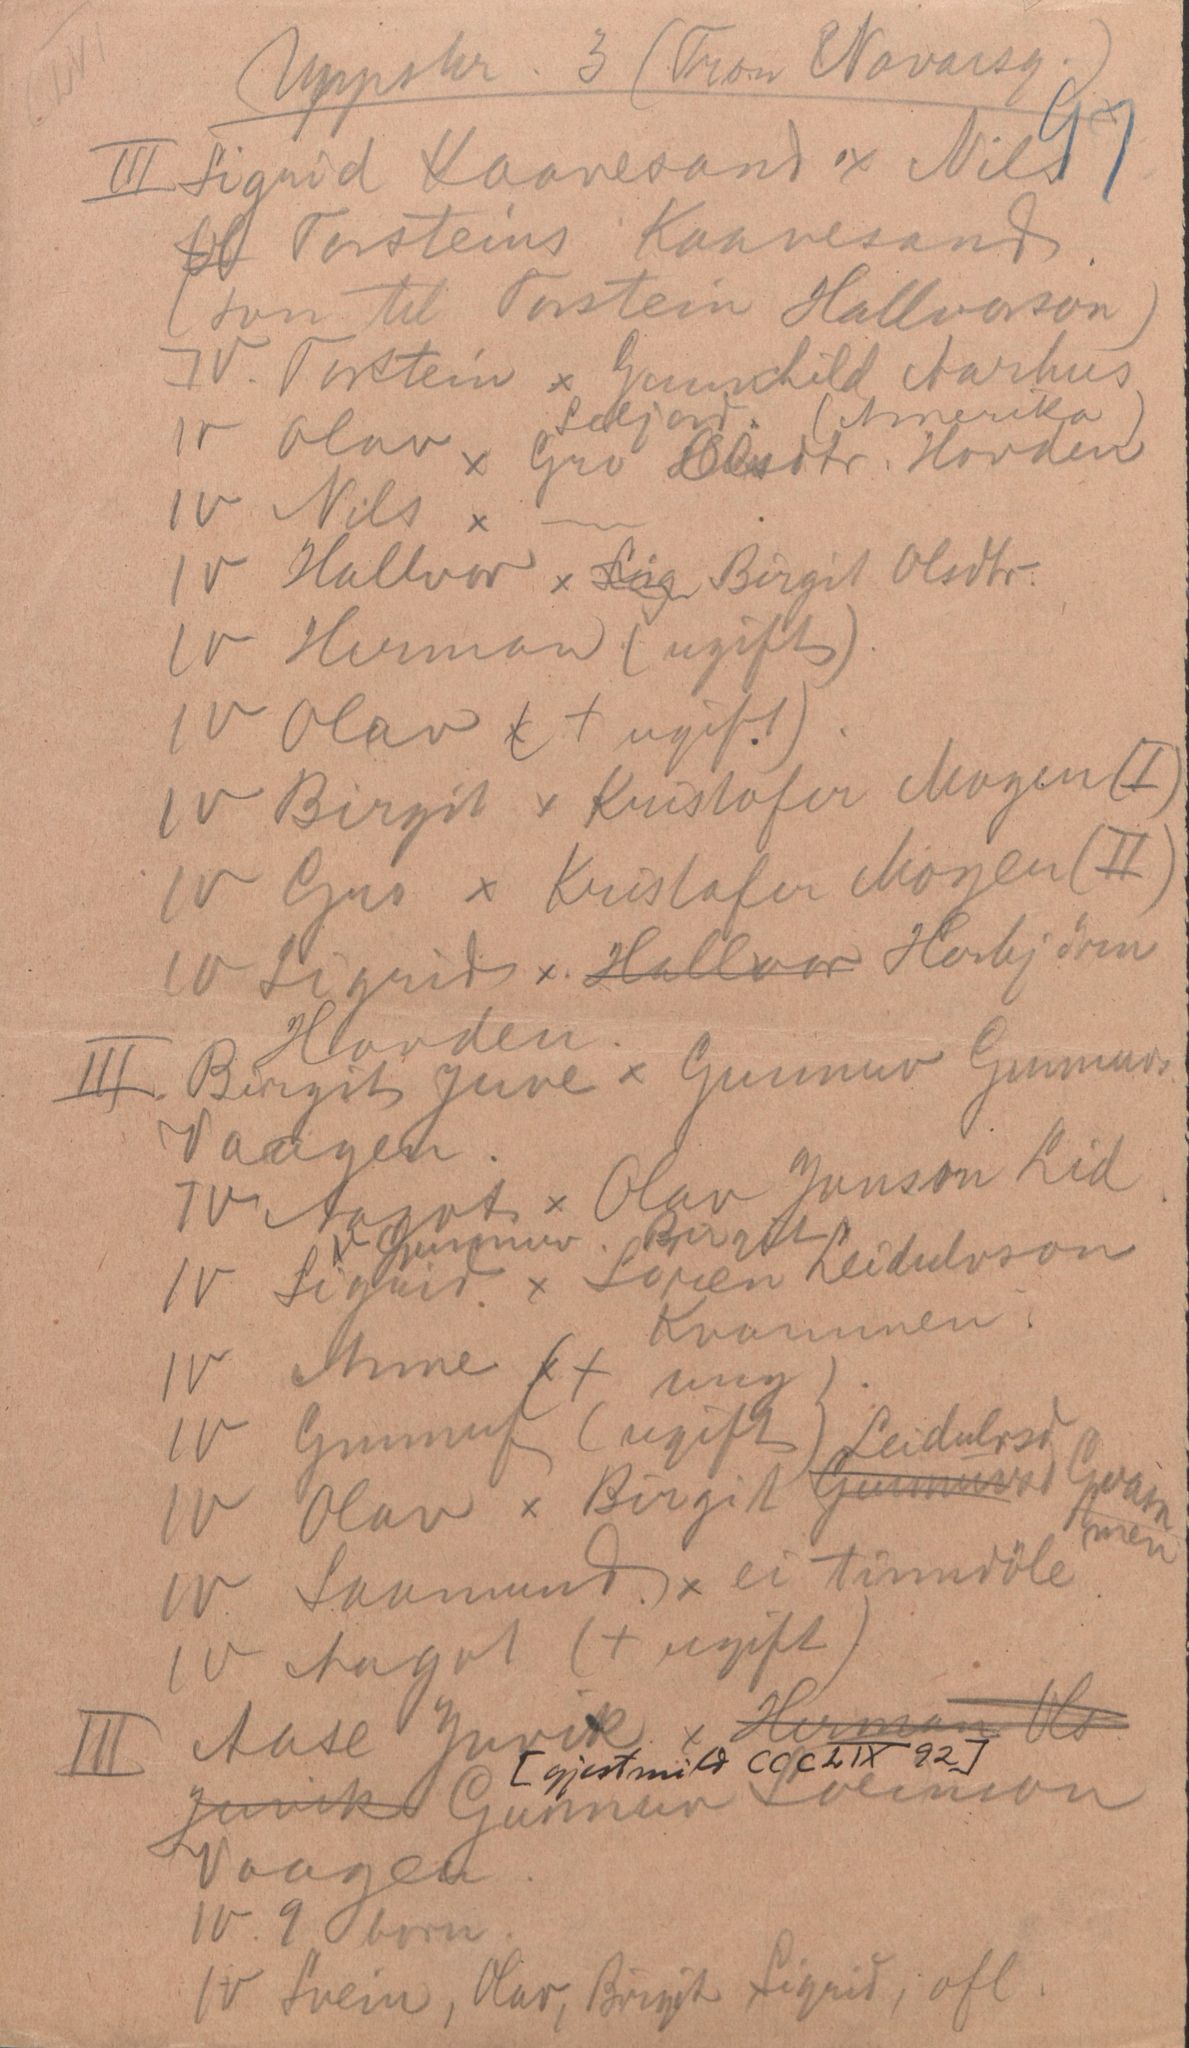 Uppskr. 3 (Tron Navarsg.)
97
III Sigrid Kaavesand x Nils
Torsteins Kaavesand.
(son til Torstein Hallvorson)
IV. Torstein x Gunnhild Aarhus
Seljord. (Amerika)
IV Olav x Gro Olsdtr. Hovden
IV Nils x —
IV Hallvor x Sig Birgit Olsdtr.
IV Herman (ugift).
IV Olav (+ ugift).
IV Birgit x Kristofer Mogen (I)
IV Gro x Kristofer Mogen (II)
IV Sigrid x. Hallvor Herbjörn
Hovden.
III. Birgit Juve x Gunnuv Gunnuvs.
Vaagen.
IV Aagot x Olav Jonson Lid.
V Gunnuv. Birgit
IV Sigrid x Sören Leidulvson
Kvammen.
IV Anne (+ ung).
IV Gunnuf (ugift)
Leidulvsd
IV Olav x Birgit Gunnuvsd Kvam
men
IV Saamund x ei tinndöle
IV Aagot (+ ugift)
III Aase Juvik x Herman Ols
[gjestmild CCCLIX 92]
Juvik Gunnuv Sveinson
Vaagen.
IV. 9 born.
IV Svein, Olav, Birgit Sigrid, ofl.